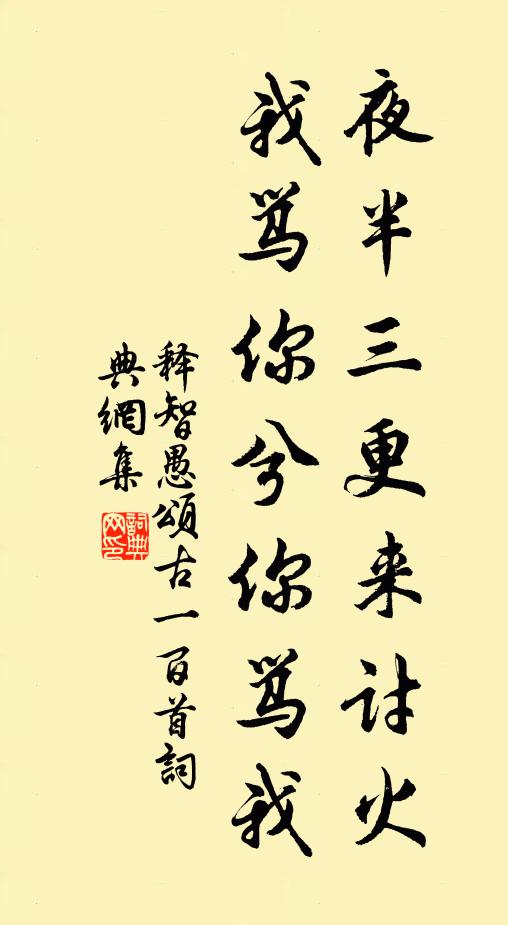 夜半三更来讨火
我骂你兮你骂我
释智愚頌古一百首詞
典網集
詞典
网印